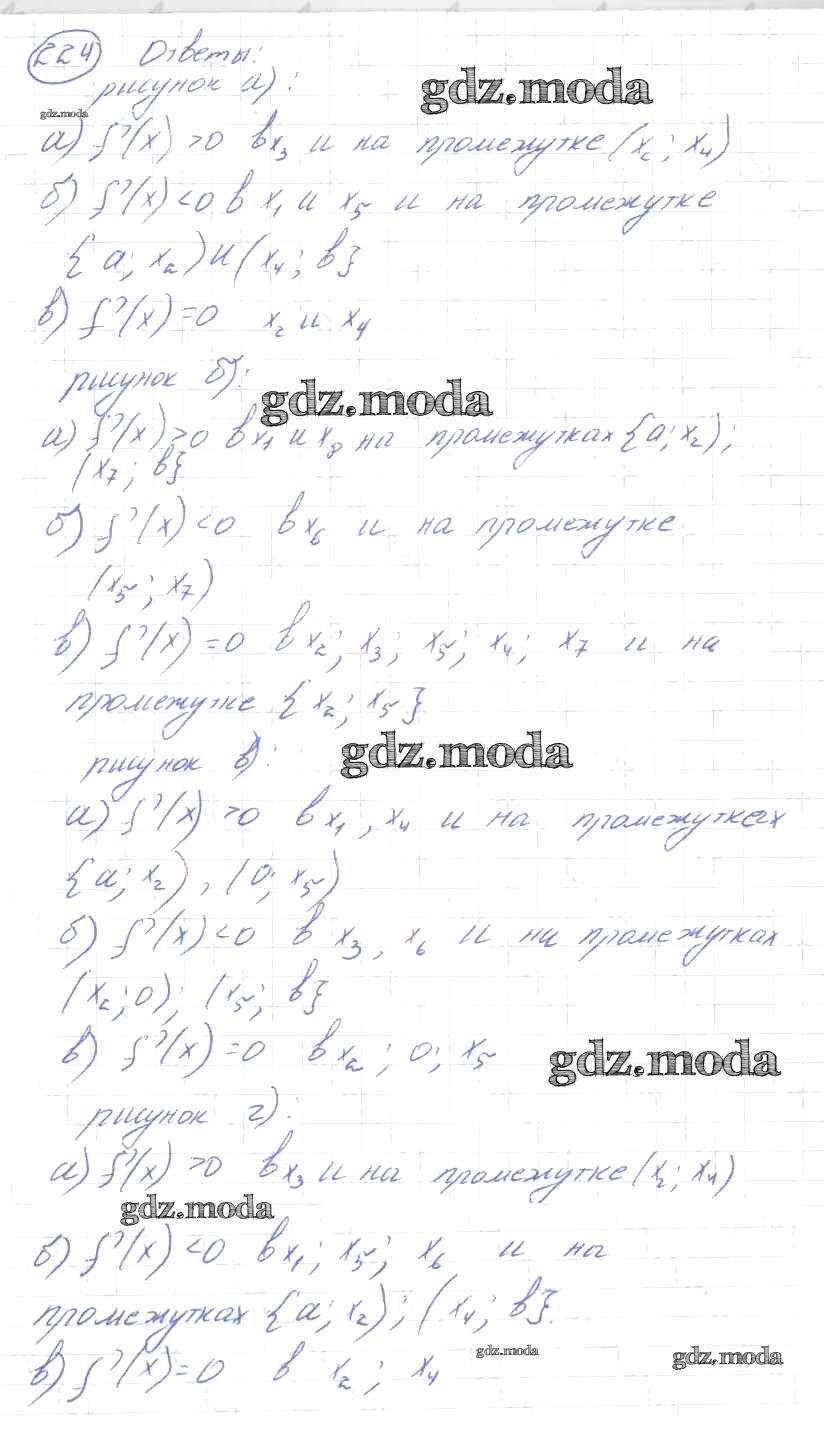 224 Ответы:
рисунок а):
gdz.moda
gdz.moda
а) f'(x) >0 в x₃ и на промежутке (x₂; x₄)
б) f'(x) <0 в x₁ и x₅ и на промежутке
{a; x₂) и (x₄; в}
в) f'(x) =0 x₂ и x₄
рисунок б):
gdz.moda
а) f'(x) >0 в x₁ и x₈ на промежутках {a; x₂);
(x₇; в}
б) f'(x) <0 в x₆ и на промежутке
(x₅; x₇)
в) f'(x) =0 в x₂; x₃; x₅; x₄; x₇ и на
промежутке {x₂; x₅}
рисунок в):
gdz.moda
а) f'(x) >0 в x₁, x₄ и на промежутках
{a; x₂), (0; x₅)
б) f'(x) <0 в x₃, x₆ и на промежутках
(x₂; 0); (x₅; в}
в) f'(x) =0 в x₂; 0; x₅
gdz.moda
рисунок г):
а) f'(x) >0 в x₃ и на промежутке (x₂; x₄)
gdz.moda
б) f'(x) <0 в x₁; x₅; x₆ и на
промежутках {a; x₂); (x₄; в}.
в) f'(x) =0 в x₂; x₄
gdz.moda
gdz.moda